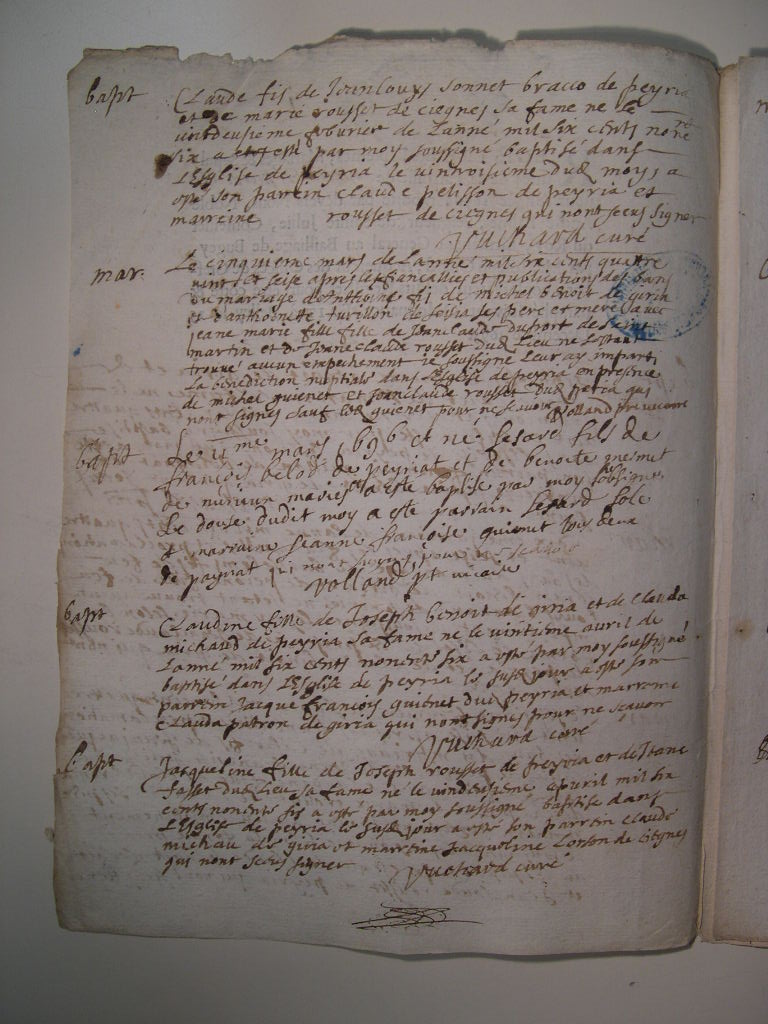 bapt Claude fis de Jeanlouys sonnet bracco de peyria
et de marie rousset de ciegnes sa fame ne le
vindeusieme feburier de Lanné mil six cents nonente
six a esté par moy soussigné baptisé dans
LEsglise de peyria le vintroisieme dud moys a
esté son parrein claude pelisson de peyria et
marreine rousset de ciegnes qui nont sceus signer
vuchard curé
mar. Le cinquieme mars de Lanné mil six cents quattre
vint et seise apres les fiancallies et publications des bans
du mariage d'Anthoine fis de michel benoit de giria
et d'anthoinette turillon de ses pere et mere avec
jeane marie fille de Jeanclaude duport de saint
martin et de Jeane claude rousset dud Lieu ne sestant
trouvé aucun empechement ie soussigné Leur ay imparti
La benediction nuptiale dans LEsglise de peyria en presence
de michel guienet et Jeanclaude rousset dud peria qui
nont signés sauf led guienet pour ne scavoir Volland pre vicaire
bapt Le 11me mars 1696 et né Lesard fils de
françois belod de peyriat et de benoite
de mariés a esté baptisé par moy
Le douse dudit moy a esté parrain Lesard
et marraine Jeanne françoise guienet tous deux
de payriat qui nont
Volland pt vicaire
bapt Claudine fille de Joseph benoit de giria et de Clauda
michaud de peyria sa fame ne le vintieme auril de
Lanné mil six cents nonente six a esté par moy soussigné
baptisé dans LEsglise de peyria le susd jour a esté son
parrein Jacque françois guienet du peyria et marreine
Clauda patron de giria qui nont signes pour ne scavoir
vuchard curé
bapt Jacqueline fille de Joseph rousset de peyria et de Jeane
fasset dud Lieu sa fame ne le vindeusieme apuril mil six
cents nonente six a esté par moy soussigné baptisé dans
LEsglise de peyria le susd jour a esté son parrein claude
michau de giria et marreine Jacqueline de ciegnes
qui nont sceus signer vuchard curé